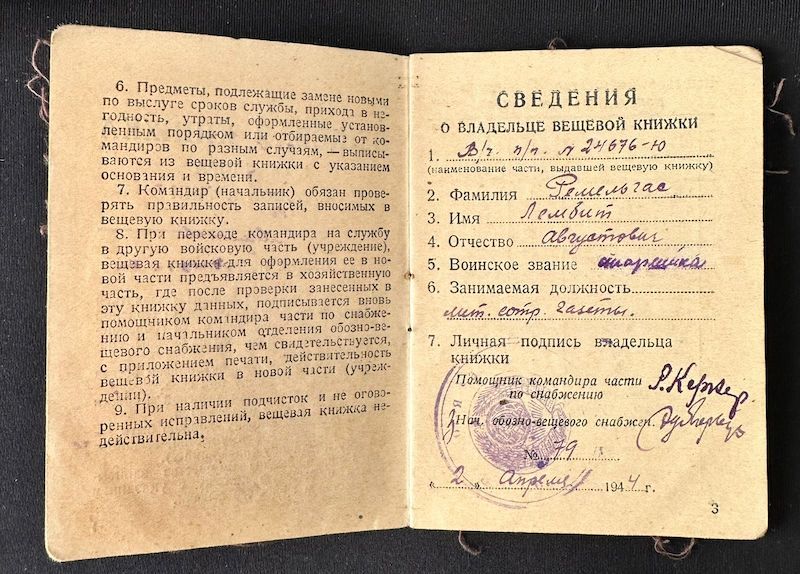 6. Предметы, подлежащие замене новыми
по выслуге сроков службы, прихода в не-
годность, утраты, оформленные установ-
ленным порядком или отбираемые от ко-
мандиров по разным случаям, — выписы-
ваются из вещевой книжки с указанием
основания и времени.
7. Командир (начальник) обязан прове-
рять правильность записей, вносимых в
вещевую книжку.
8. При переходе командира на службу
в другую войсковую часть (учреждение),
вещевая книжка для оформления ее в но-
вой части предъявляется в хозяйственную
часть, где после проверки занесенных в
эту книжку данных, подписывается вновь
помощником командира части по снабже-
нию и начальником отделения обозно-ве-
щевого снабжения, чем свидетельствуется,
с приложением печати, действительность
вещевой книжки в новой части (учреж-
дении).
9. При наличии подчисток и не огово-
ренных исправлений, вещевая книжка не-
действительна.
СВЕДЕНИЯ
О ВЛАДЕЛЬЦЕ ВЕЩЕВОЙ КНИЖКИ
1. В/ч. п/п. № 24676-Ю
(наименование части, выдавшей вещевую книжку)
2. Фамилия Ремельгас
3. Имя Лембит
4. Отчество Августович
5. Воинское звание
6. Занимаемая должность
лит. сотр. газеты.
7. Личная подпись владельца
книжки
Помощник командира части
по снабжению
Нач. обозно-вещевого снабжен.
№ 79
" 2 " Апреля 1944 г.
3